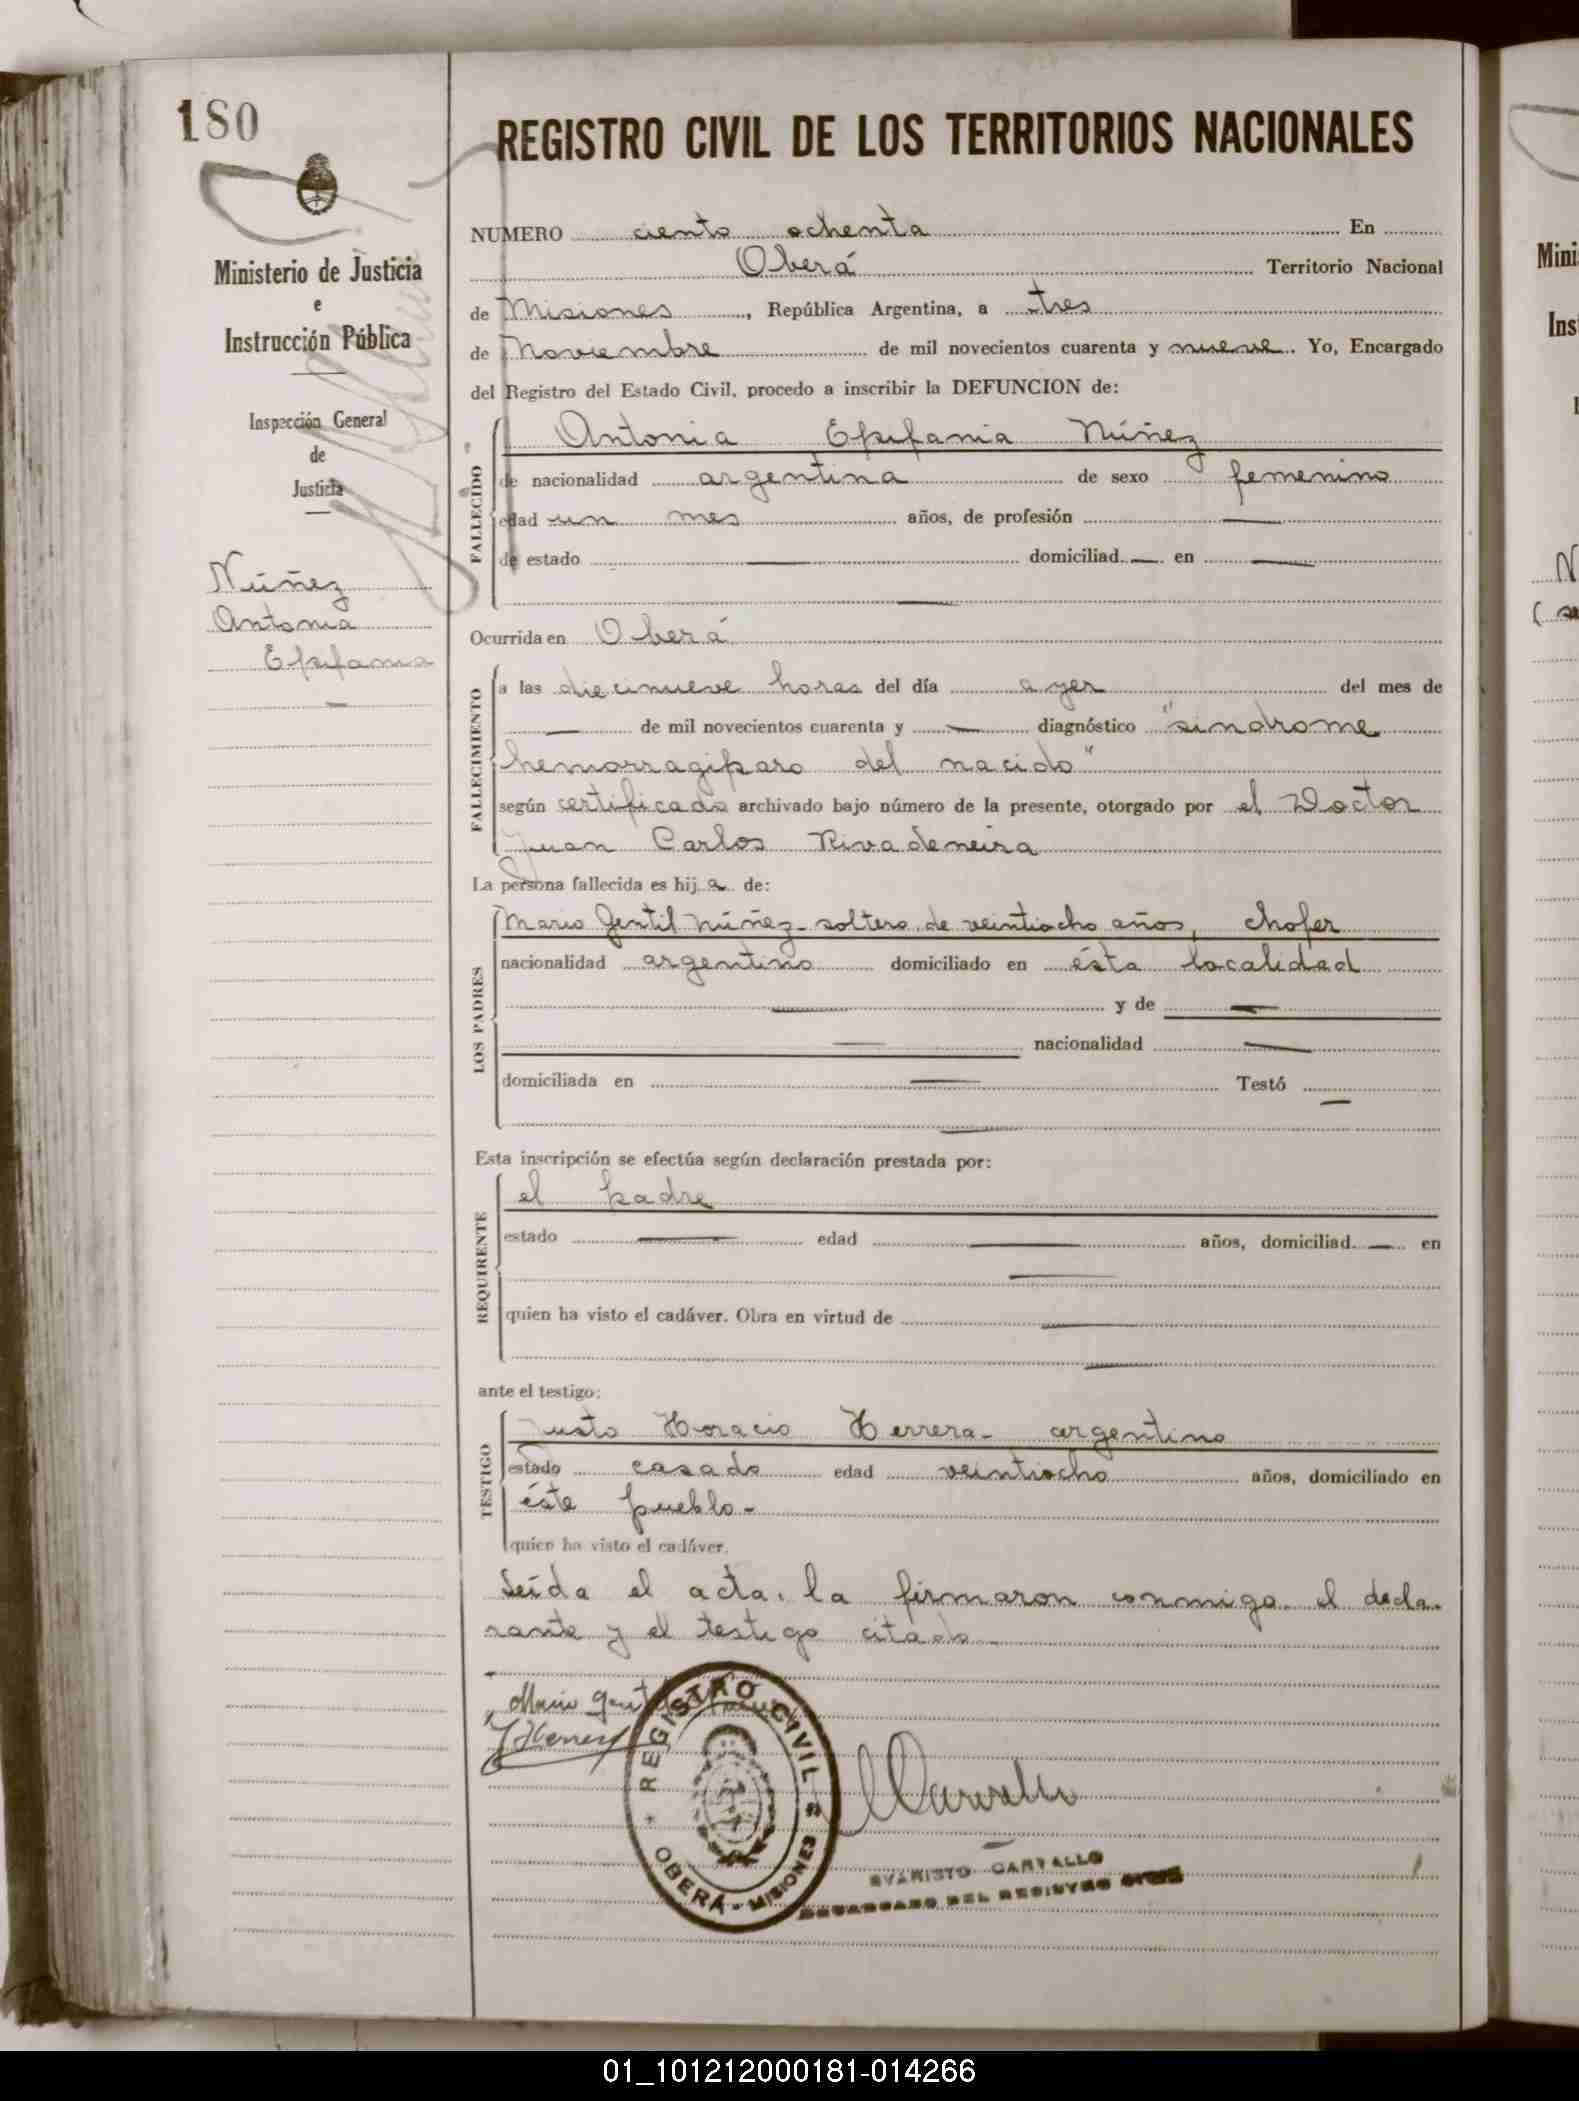 180
REGISTRO CIVIL DE LOS TERRITORIOS NACIONALES
Ministerio de Justicia
e
Instrucción Pública
Inspección General
de
Justicia
Núñez
Antonia
Epifania
NUMERO ciento ochenta En
Oberá Territorio Nacional
de Misiones, República Argentina, a tres
de Noviembre de mil novecientos cuarenta y nueve. Yo, Encargado
del Registro del Estado Civil, procedo a inscribir la DEFUNCION de:
FALLECIDO
Antonia Epifania Núñez
de nacionalidad argentina de sexo femenino
edad un mes años, de profesión —
de estado — domiciliad — en —
—
Ocurrida en Oberá
FALLECIMIENTO
a las diecinueve horas del día ayer del mes de
— de mil novecientos cuarenta y — diagnóstico "sindrome
hemorragiparo del nacido"
según certificado archivado bajo número de la presente, otorgado por el Doctor
Juan Carlos Rivadeneira
La persona fallecida es hija de:
LOS PADRES
Mario Gentil Núñez - soltero, de veintiocho años, chofer
nacionalidad argentino domiciliado en ésta localidad
— y de —
— nacionalidad —
domiciliada en — Testó —
—
Esta inscripción se efectúa según declaración prestada por:
REQUIRENTE
el padre
estado — edad — años, domiciliad — en
—
quien ha visto el cadáver. Obra en virtud de —
—
ante el testigo:
TESTIGO
Justo Horacio Herrera - argentino
estado casado edad veintiocho años, domiciliado en
éste pueblo -
quien ha visto el cadáver.
Leída el acta, la firmaron conmigo el decla-
rante y el testigo citado -
Mario Gentil
JHerrera
REGISTRO CIVIL
OBERÁ - MISIONES
Carvallo
EVARISTO CARVALLO
ENCARGADO DEL REGISTRO CIVIL
Mini
Ins
N
01_101212000181-014266